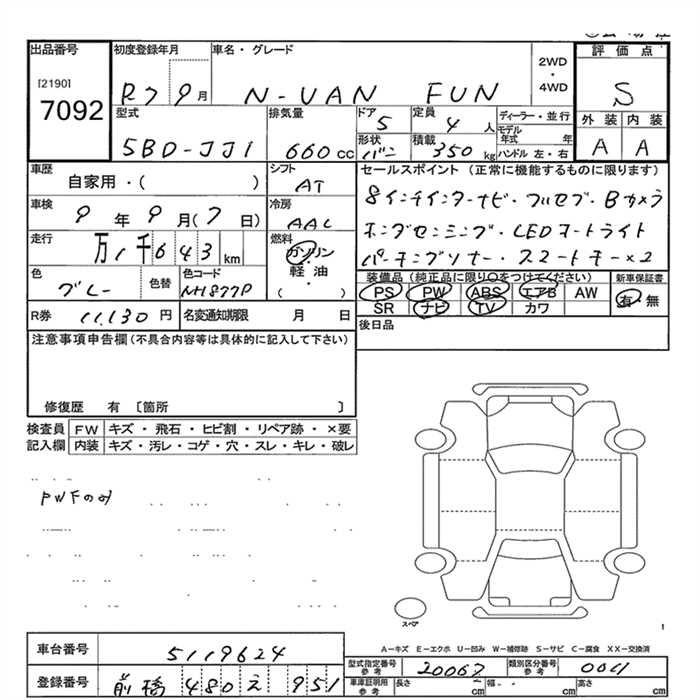 出品番号 初度登録年月 車名・グレード 2WD・4WD 評価点
[2190]
7092
R7 9月 N-VAN FUN S
型式 排気量 ドア 定員 ディーラー・並行 外装 内装
5BD-JJ1 660cc 5 4人 モデル年式 年 A A
形状 積載
バン 350kg ハンドル 左・右
車歴 シフト セールスポイント (正常に機能するものに限ります)
自家用・( ) AT
8インチインターナビ・フルセグ・Bカメラ
車検 冷房
9年9月(7日) AAC
ホンダセンシング・LEDオートライト
走行 燃料
万1千643km ガソリン
軽油
・
( )
パーキングソナー・スマートキー×2
色 色替 色コード 装備品(純正品に限り○をつけてください) 新車保証書
グレー NH877P
PS PW ABS エアB AW 有・無
SR ナビ TV カワ
R券 11,130円 名変通知期限 月 日 後日品
注意事項申告欄(不具合内容等は具体的に記入して下さい)
修復歴 有 〔箇所 〕
検査員 FW キズ・飛石・ヒビ割・リペア跡・×要
記入欄 内装 キズ・汚レ・コゲ・穴・スレ・キレ・破レ
PWFのみ
スペア
1
A-キズ E-エクボ U-凹み W-補修跡 S-サビ C-腐食 XX-交換済
車台番号 5119624
型式指定番号 参考 20067 類別区分番号 参考 0001
登録番号 前橋 480 え 951
車庫証明用 参考 長さ cm 幅 cm 高さ cm